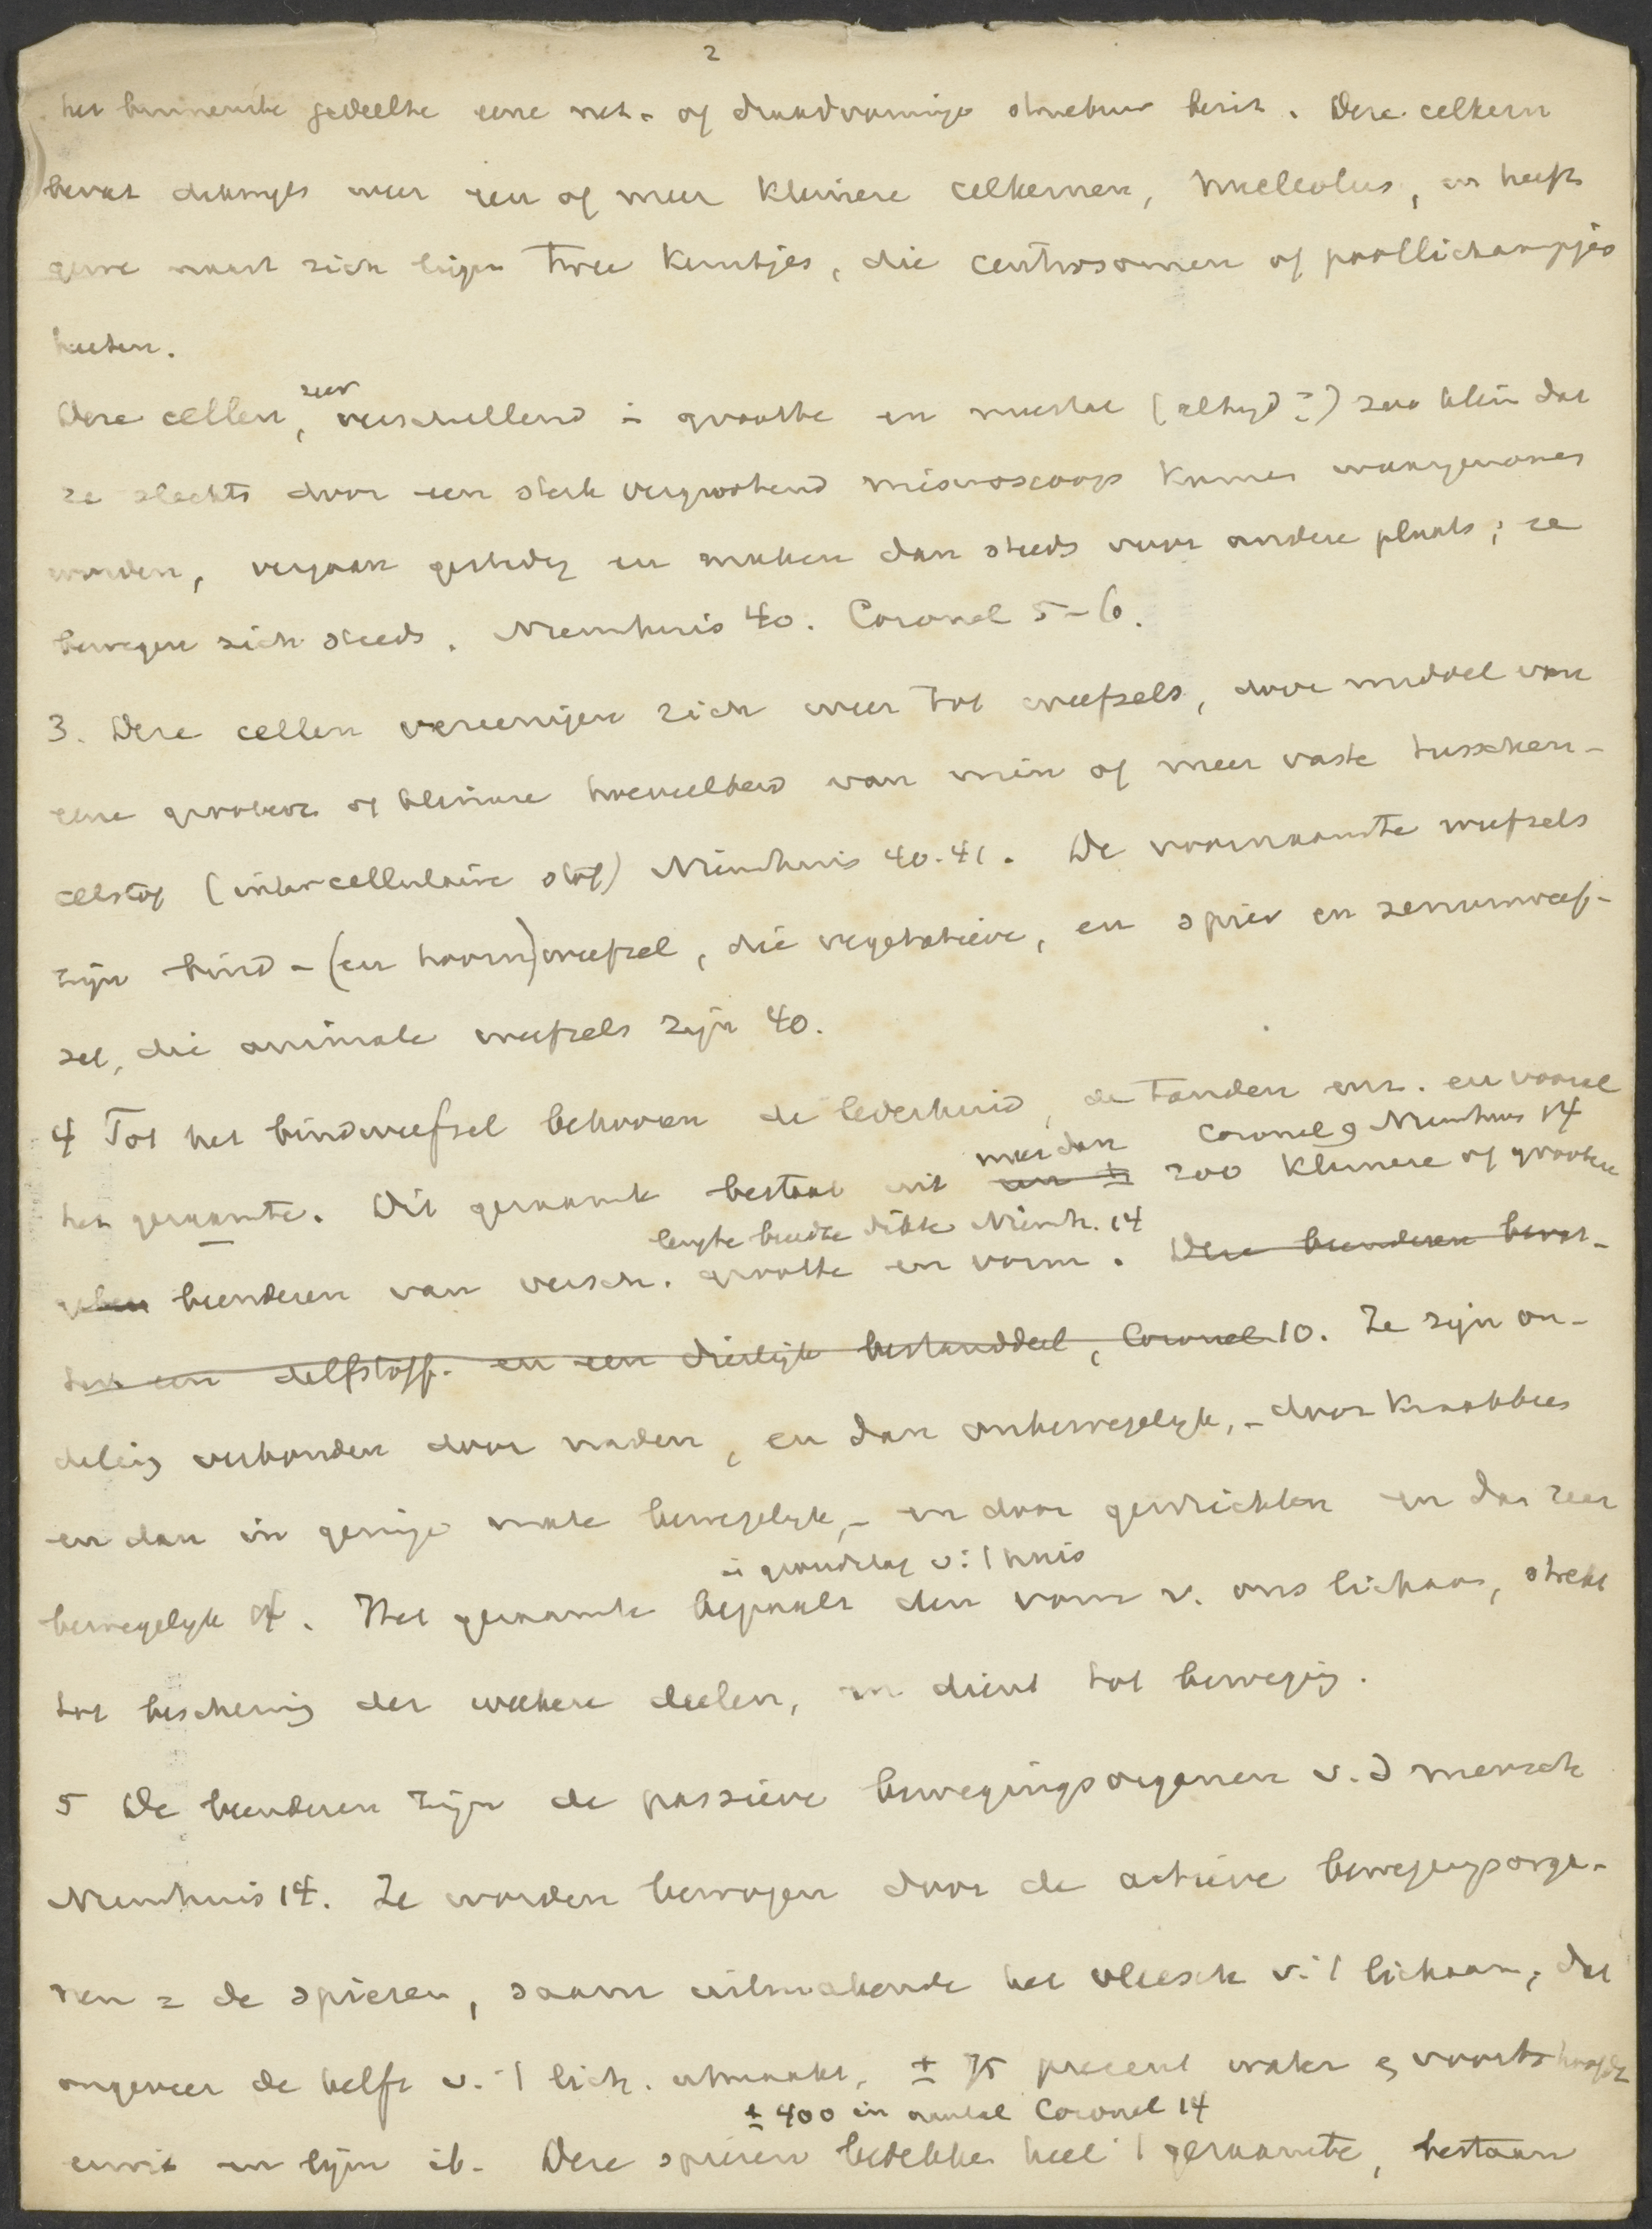 2
het binnenste gedeelte eene net- of draadvormige structuur bezit. Deze celkern
bevat dikwijls weer een of meer kleinere celkernen, nucleolus, en heeft
gene naast zich liggen twee kerntjes, die centrosomen of poollichaampjes
heeten.
zeer
Deze cellen, verschillend in grootte en meestal (altijd?) zoo klein dat
ze slechts door een sterk vergrootend microscoop kunnen waargenomen
worden, vergaan gestadig en maken dan steeds voor andere plaats; ze
bewegen zich steeds. Nieuwhuis 40. Coronel 5-6.
3. Deze cellen vereenigen zich weer tot weefsels, door middel van
eene grootere of kleinere hoeveelheid van min of meer vaste tusschen-
celstof (intercellulaire stof) Nieuwhuis 40.41. De voornaamste weefsels
zijn bind- (en hoorn)weefsel, die vegetatieve, en spier en zenuwweef-
sel, die animale weefsels zijn 40.
4 Tot het bindweefsel behooren de lederhuid, de tanden enz. en vooral
meer dan Coronel 9 Nieuwhuis 14
het geraamte. Dit geraamte bestaat uit een ± 200 kleinere of grootere
lengte breedte dikte Nieuwh. 14
beenderen van versch. grootte en vorm. Deze beenderen bevat-
ten een delfstoff. en een dierlijk bestanddeel, Coronel 10. Ze zijn on-
deling verbonden door naden, en dan onbewegelijk, - door kraakbeen
en dan in geringe mate bewegelijk, - en door gewrichten en dan zeer
in grondslag v. 't huis
bewegelijk 14. Het geraamte bepaalt den vorm v. ons lichaam, strekt
tot bescherming der weekere deelen, en dient tot beweging.
5 De beenderen zijn de passieve bewegingsorganen v. d mensch
Nieuwhuis 14. Ze worden bewogen door de actieve bewegingsorga-
nen = de spieren, saam uitmakende het vleesch v. 't lichaam, dat
ongeveer de helft v. 't lich. uitmaakt, ± 75 procent water en voorts hoofdz
± 400 in aantal Coronel 14
eiwit en lijm ib. Deze spieren bedekken heel 't geraamte, bestaan